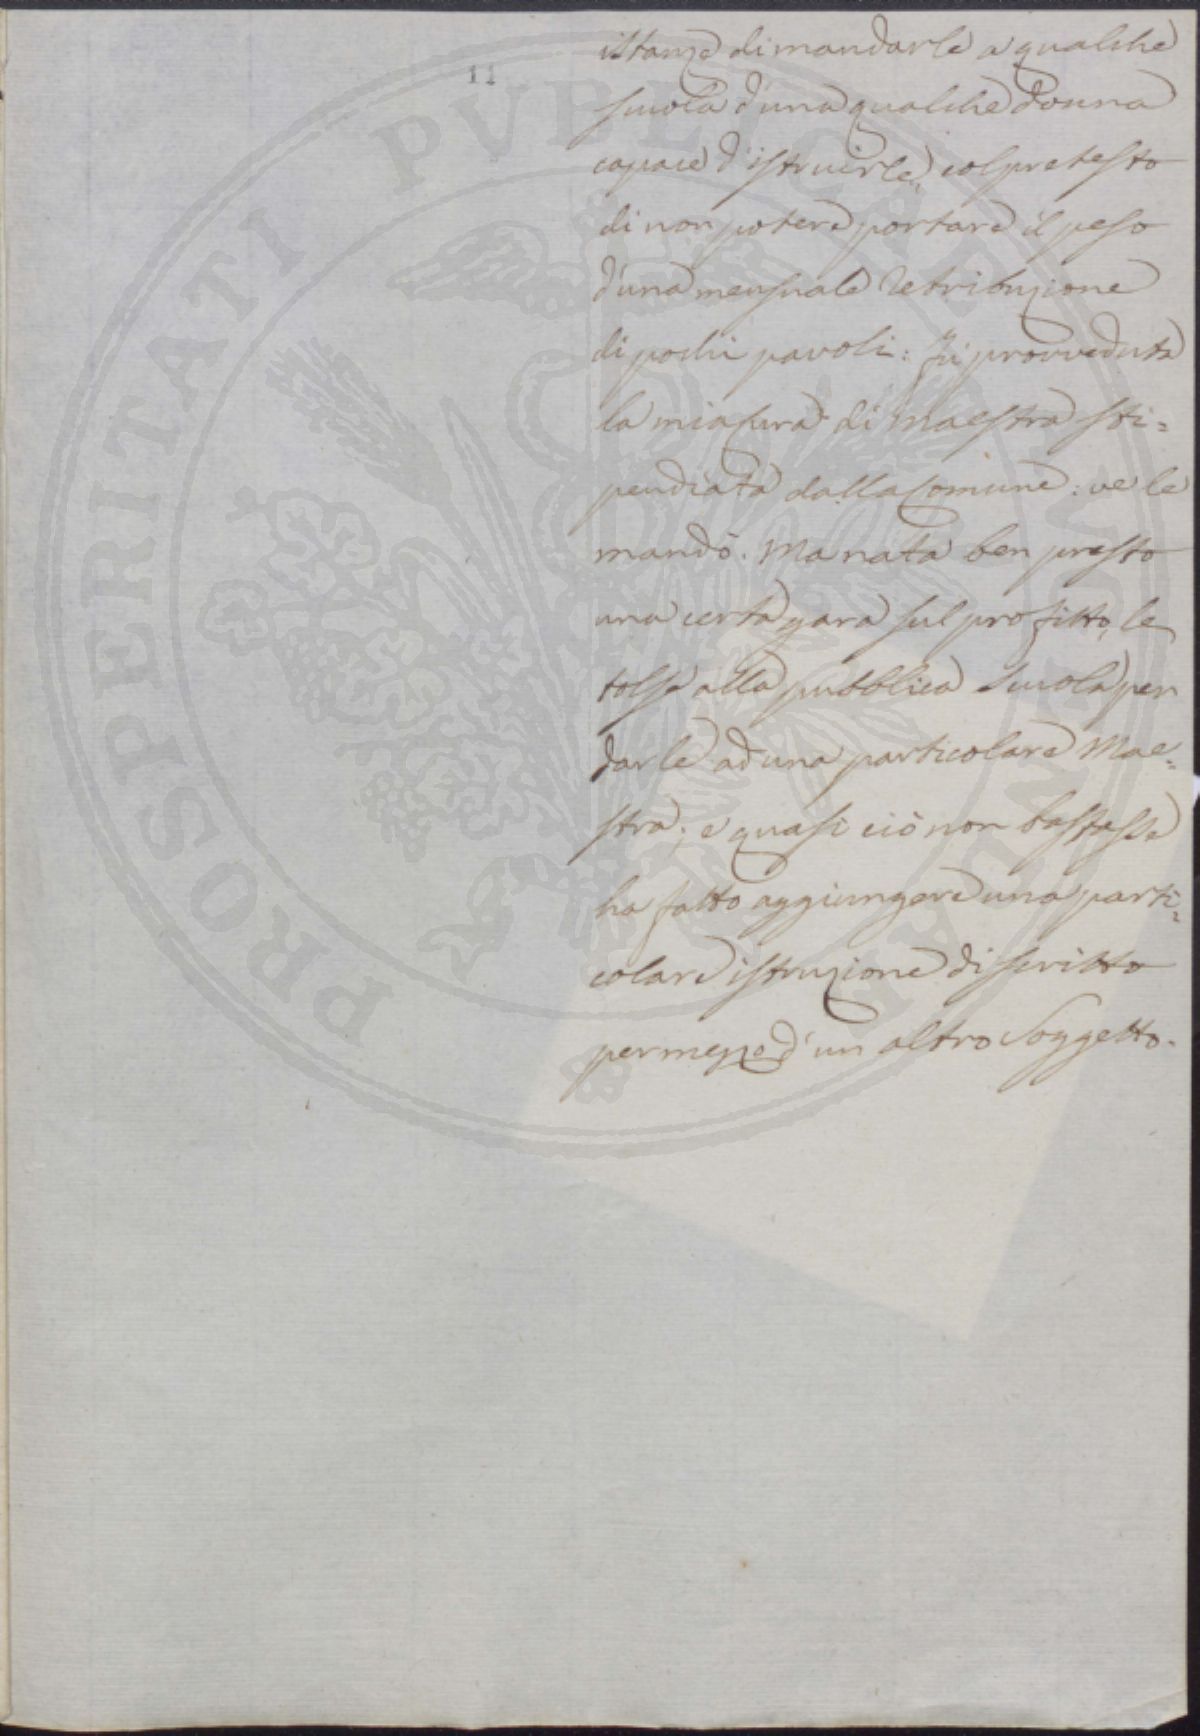 11
istanze di mandarle a qualche
scuola d'una qualche donna
capace d'istruirle, col pretesto
di non potere portare il peso
d'una mensuale retribuzione
di pochi pavoli: fù provveduta
la mia Cura di maestra sti=
pendiata dalla Comune: ve le
mandò. Ma nata ben presto
una certa gara sul profitto, le
tolse alla pubblica Scuola per
darle ad una particolare Mae=
stra; e quasi ciò non bastasse
ha fatto aggiungere una parti=
colare istruzione di scritto
per mezzo d'un altro Soggetto.
PROSPERITATI PVBLICAE AVGENDAE